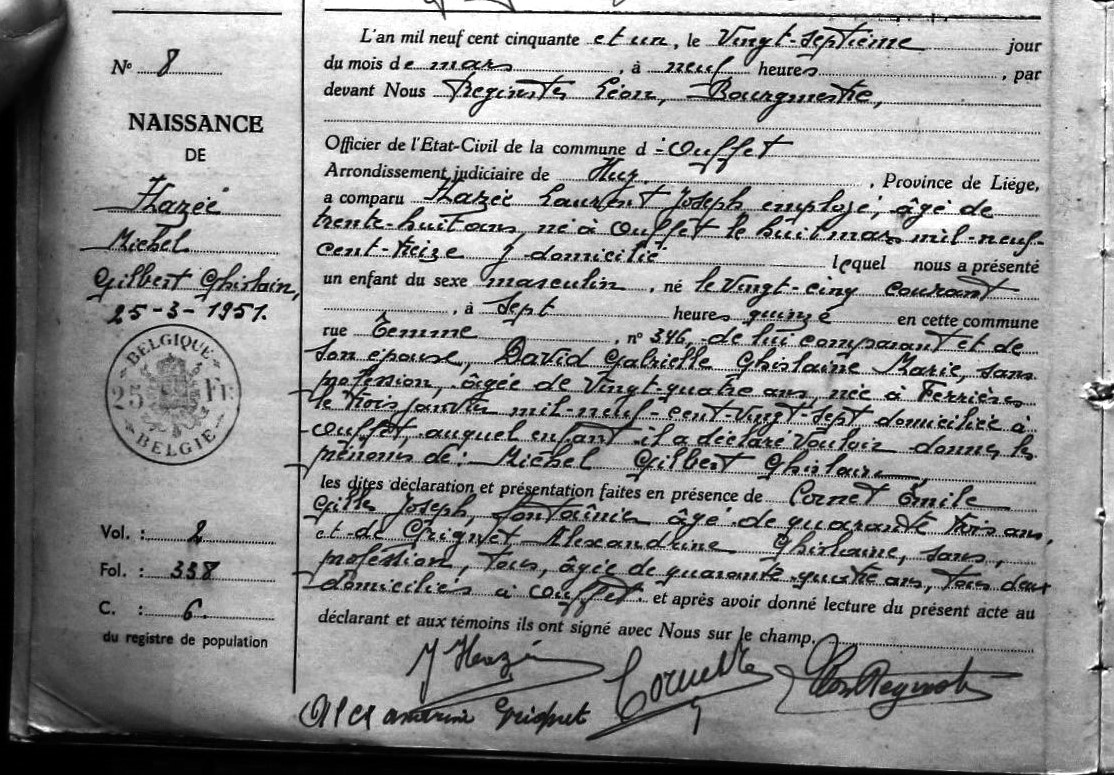 N° 8
NAISSANCE
DE
Hazée
Michel
Gilbert Ghislain,
25-3-1951.
BELGIQUE
25 Fr
BELGIE
Vol. : 2
Fol. : 338
C. : 6.
du registre de population
L'an mil neuf cent cinquante et un, le Vingt-septième jour
du mois de mars, à neuf heures, par
devant Nous Léon, Bourgmestre,
Officier de l'Etat-Civil de la commune d'Ouffet
Arrondissement judiciaire de Huy, Province de Liége,
a comparu Hazée Laurent Joseph, employé, âgé de
trente-huit ans, né à Ouffet le huit mars mil-neuf-
cent-treize, y domicilié lequel nous a présenté
un enfant du sexe masculin, né le Vingt-cinq courant
, à sept heures quinze en cette commune
rue Temme, n° 346, de lui comparant et de
son épouse, David Gabrielle Ghislaine Marie, sans
profession, âgée de Vingt-quatre ans, née à Ferrières
le trois janvier mil-neuf-cent-vingt-sept domiciliée à
Ouffet, auquel enfant il a déclaré vouloir donner les
prénoms de : Michel Gilbert Ghislain
les dites déclaration et présentation faites en présence de Cornet Emile
Gilles Joseph, fontainier âgé de quarante trois ans,
et de Grignet Alexandrine Ghislaine, sans
profession, tous, âgée de quarante-quatre ans, tous deux
domiciliés à Ouffet. et après avoir donné lecture du présent acte au
déclarant et aux témoins ils ont signé avec Nous sur le champ.
Hazée